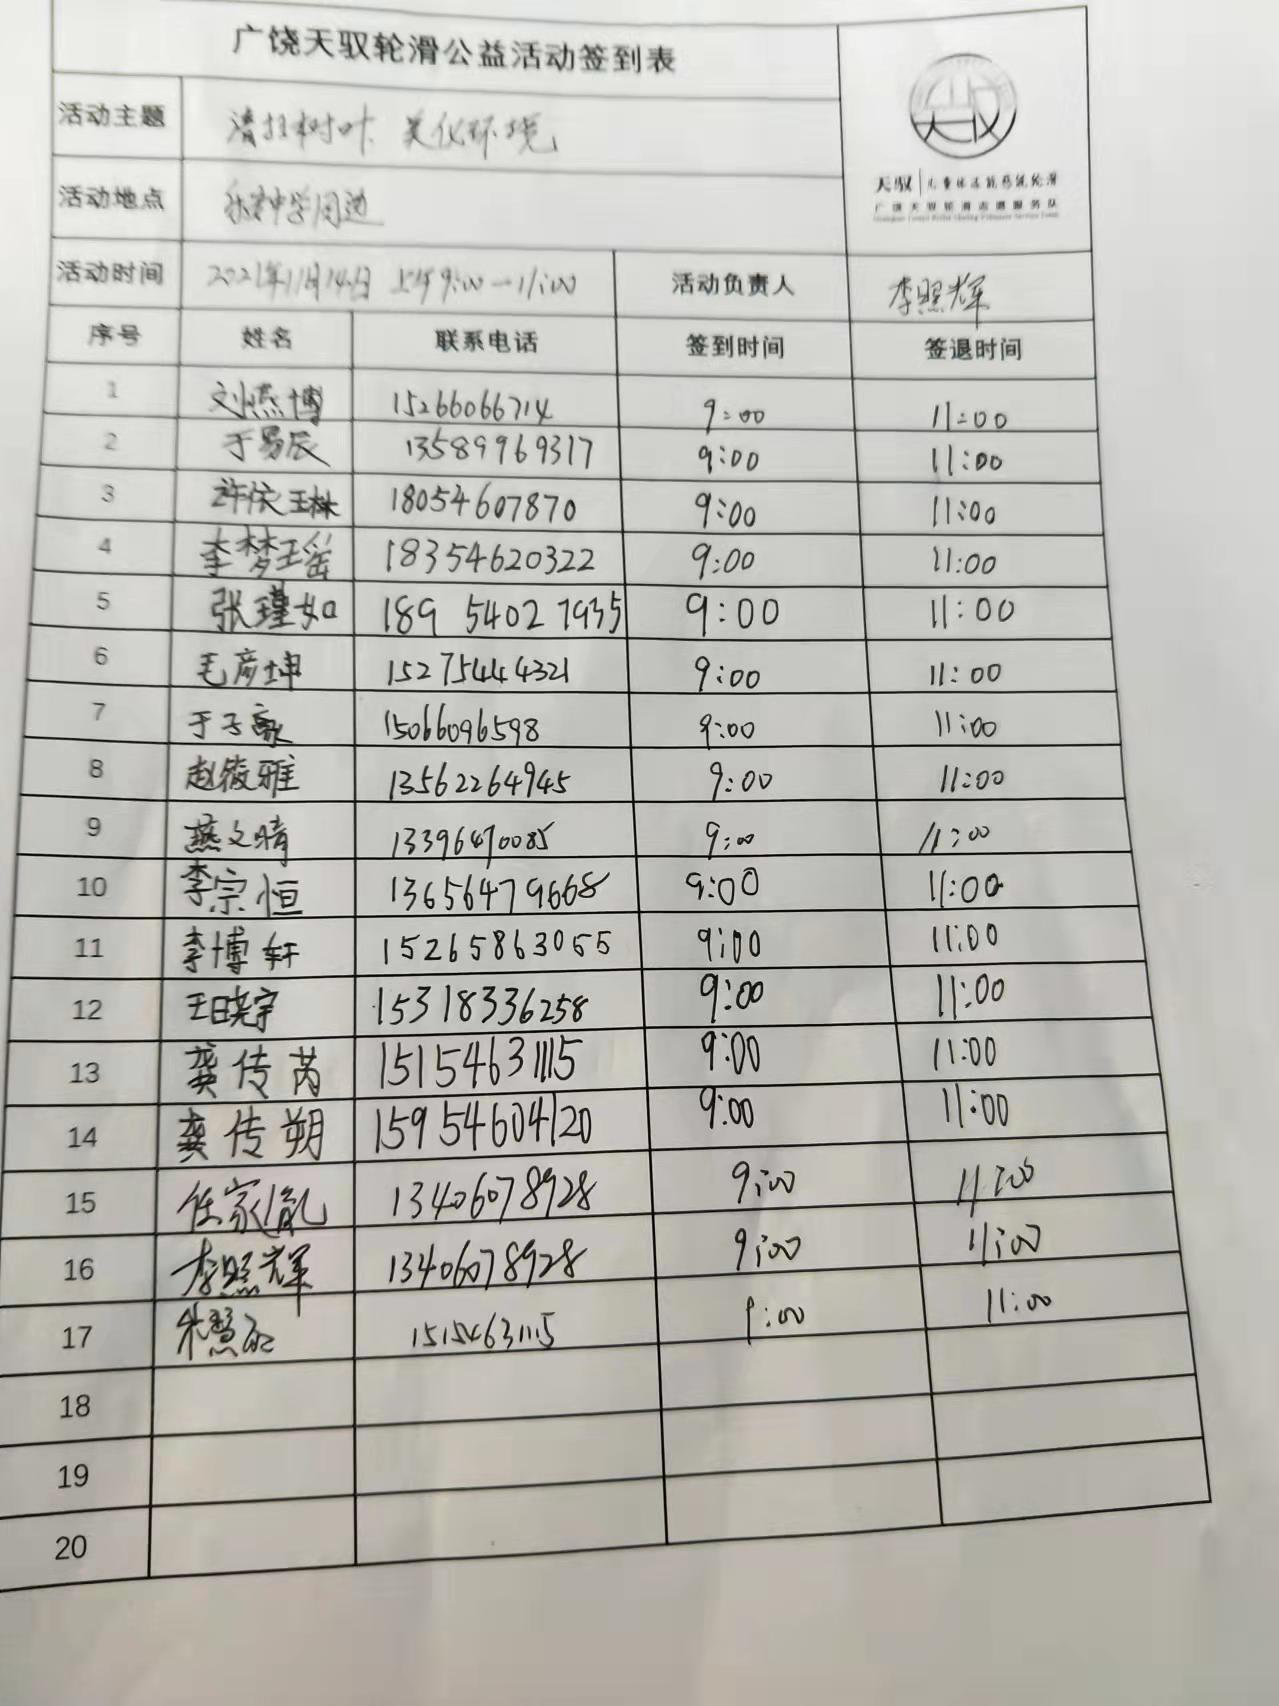 广饶天驭轮滑公益活动签到表
天驭
天驭 儿童体适能感统轮滑
广饶天驭轮滑志愿服务队
活动主题 清扫树叶 美化环境
活动地点 乐安中学周边
活动时间 2021年11月14日 上午9:00—11:00 活动负责人 李照辉
序号 姓名 联系电话 签到时间 签退时间
1 刘燕博 15266066714 9:00 11:00
2 于易辰 13589969317 9:00 11:00
3 许依琳 18054607870 9:00 11:00
4 李梦瑶 18354620322 9:00 11:00
5 张瑾如 189 5402 7935 9:00 11:00
6 毛彦坤 15275444321 9:00 11:00
7 于子 15066096598 9:00 11:00
8 赵筱雅 13562264945 9:00 11:00
9 燕文晴 13396470085 9:00 11:00
10 李宗恒 13656479668 9:00 11:00
11 李博轩 15265863055 9:00 11:00
12 王晓宇 15318336258 9:00 11:00
13 龚传芮 15154631115 9:00 11:00
14 龚传朔 15954604120 9:00 11:00
15 任家胤 13406078928 9:00 11:00
16 李照辉 13406078928 9:00 11:00
17 朱慧 15154631115 9:00 11:00
18
19
20